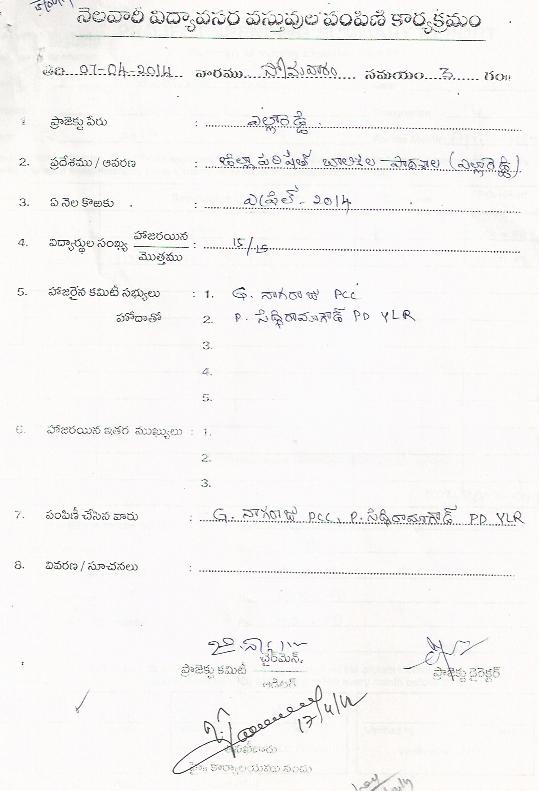 నెలవారీ విద్యావసర వస్తువుల పంపిణి కార్యక్రమం
తేది 07-04-2014 వారము సోమవారం సమయం 3 గం॥
1. ప్రాజెక్టు పేరు : ఎల్లారెడ్డి.
2. ప్రదేశము / ఆవరణ : జిల్లా పరిషత్ బాలికల - పాఠశాల (ఎల్లారెడ్డి)
3. ఏ నెల కొఱకు : ఎప్రిల్ - 2014
4. విద్యార్థుల సంఖ్య హాజరయిన / మొత్తము : 15/15
5. హాజరైన కమిటీ సభ్యులు : 1. G. నాగరాజు PCC
హోదాతో 2. P. సిద్ధిరామాగౌడ్ PD YLR
3.
4.
5.
6. హాజరయిన ఇతర ముఖ్యులు : 1.
2.
3.
7. పంపిణీ చేసిన వారు : G. నాగరాజు PCC, P. సిద్ధిరామాగౌడ్ PD YLR
8. వివరణ / సూచనలు :
చైర్మెన్,
ప్రాజెక్టు కమిటీ ప్రాజెక్టు డైరెక్టర్
17/4/14